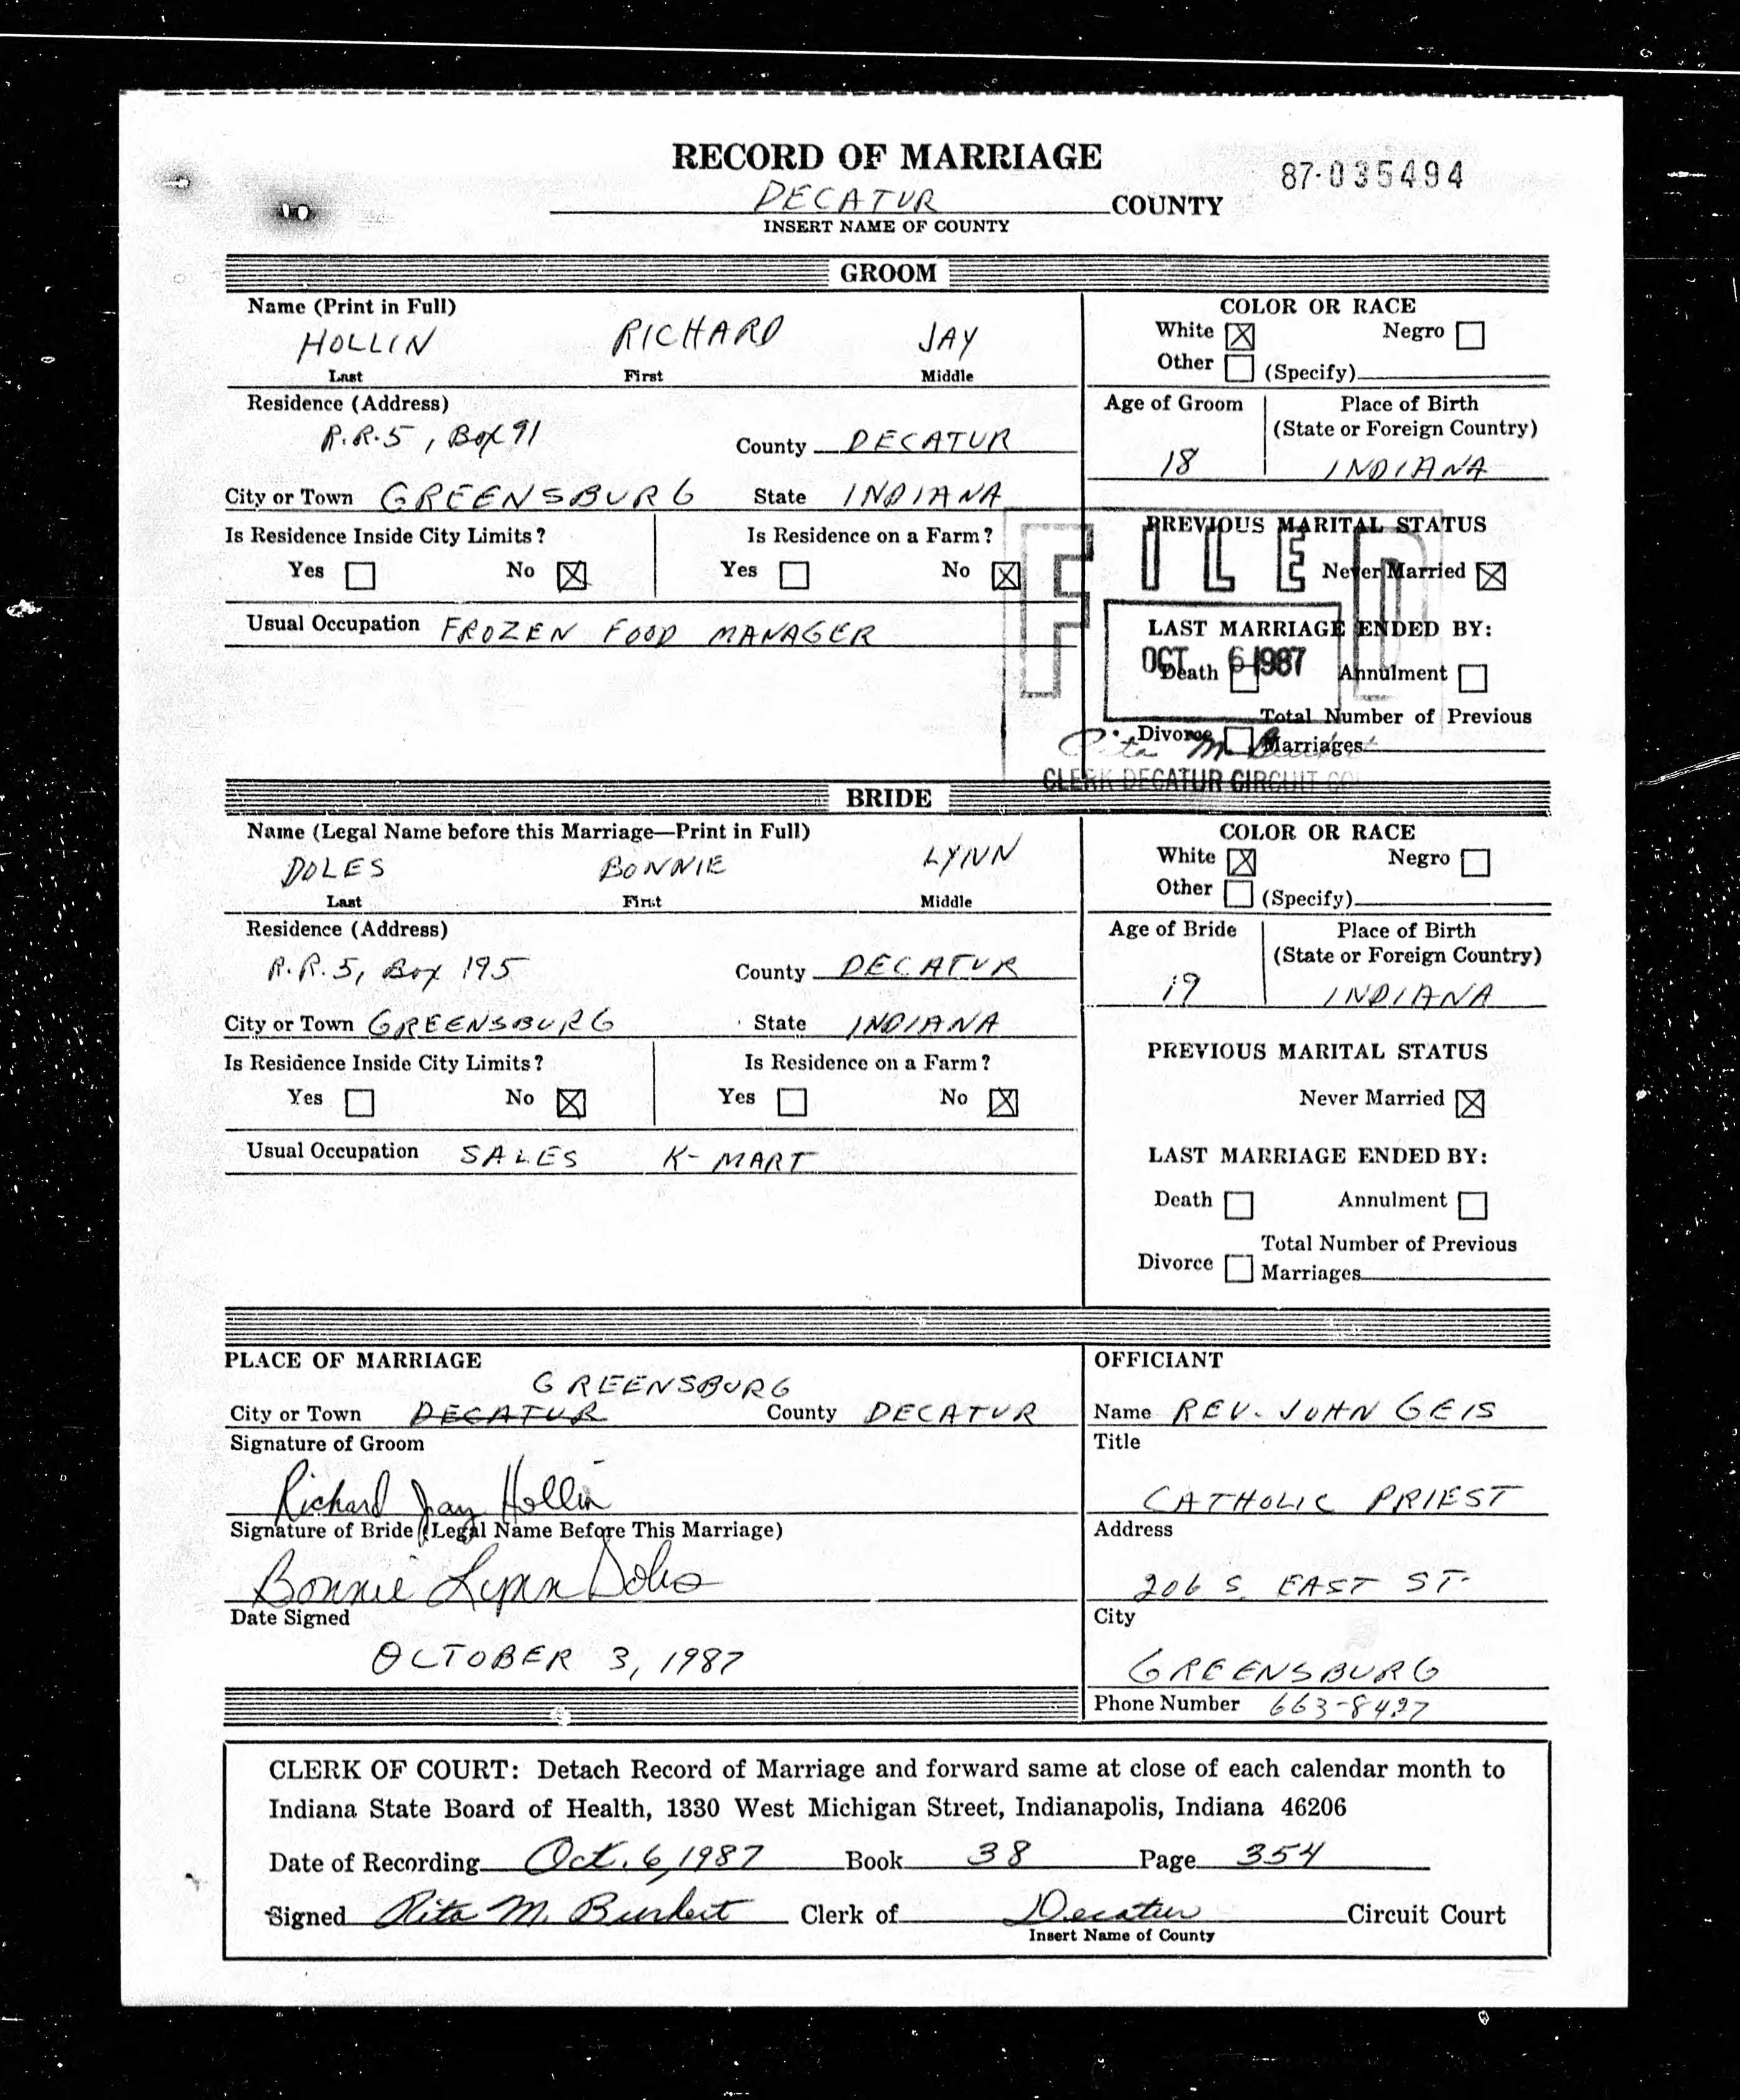 RECORD OF MARRIAGE
87-035494
DECATUR COUNTY
INSERT NAME OF COUNTY
GROOM
Name (Print in Full)
HOLLIN RICHARD JAY
Last First Middle
COLOR OR RACE
White ☒ Negro ☐
Other ☐ (Specify)
Residence (Address)
R.R.5, Box 91 County DECATUR
City or Town GREENSBURG State INDIANA
Age of Groom
18
Place of Birth
(State or Foreign Country)
INDIANA
Is Residence Inside City Limits?
Yes ☐ No ☒
Is Residence on a Farm?
Yes ☐ No ☒
Usual Occupation FROZEN FOOD MANAGER
PREVIOUS MARITAL STATUS
Never Married ☒
LAST MARRIAGE ENDED BY:
Death ☐ Annulment ☐
Divorce ☐ Total Number of Previous
Marriages
FILED
OCT 6 1987
Rita M.
CLERK DECATUR CIRCUIT
BRIDE
Name (Legal Name before this Marriage—Print in Full)
DOLES BONNIE LYNN
Last First Middle
COLOR OR RACE
White ☒ Negro ☐
Other ☐ (Specify)
Residence (Address)
R.R.5, Box 195 County DECATUR
City or Town GREENSBURG State INDIANA
Age of Bride
19
Place of Birth
(State or Foreign Country)
INDIANA
Is Residence Inside City Limits?
Yes ☐ No ☒
Is Residence on a Farm?
Yes ☐ No ☒
Usual Occupation SALES K-MART
PREVIOUS MARITAL STATUS
Never Married ☒
LAST MARRIAGE ENDED BY:
Death ☐ Annulment ☐
Divorce ☐ Total Number of Previous
Marriages
PLACE OF MARRIAGE
GREENSBURG
City or Town DECATUR County DECATUR
Signature of Groom
Richard Jay Hollin
Signature of Bride (Legal Name Before This Marriage)
Bonnie Lynn Doles
Date Signed
OCTOBER 3, 1987
OFFICIANT
Name REV. JOHN GEIS
Title
CATHOLIC PRIEST
Address
206 S. EAST ST.
City
GREENSBURG
Phone Number 663-8427
CLERK OF COURT: Detach Record of Marriage and forward same at close of each calendar month to
Indiana State Board of Health, 1330 West Michigan Street, Indianapolis, Indiana 46206
Date of Recording Oct. 6, 1987 Book 38 Page 354
Signed Rita M. Burkert Clerk of Decatur Circuit Court
Insert Name of County